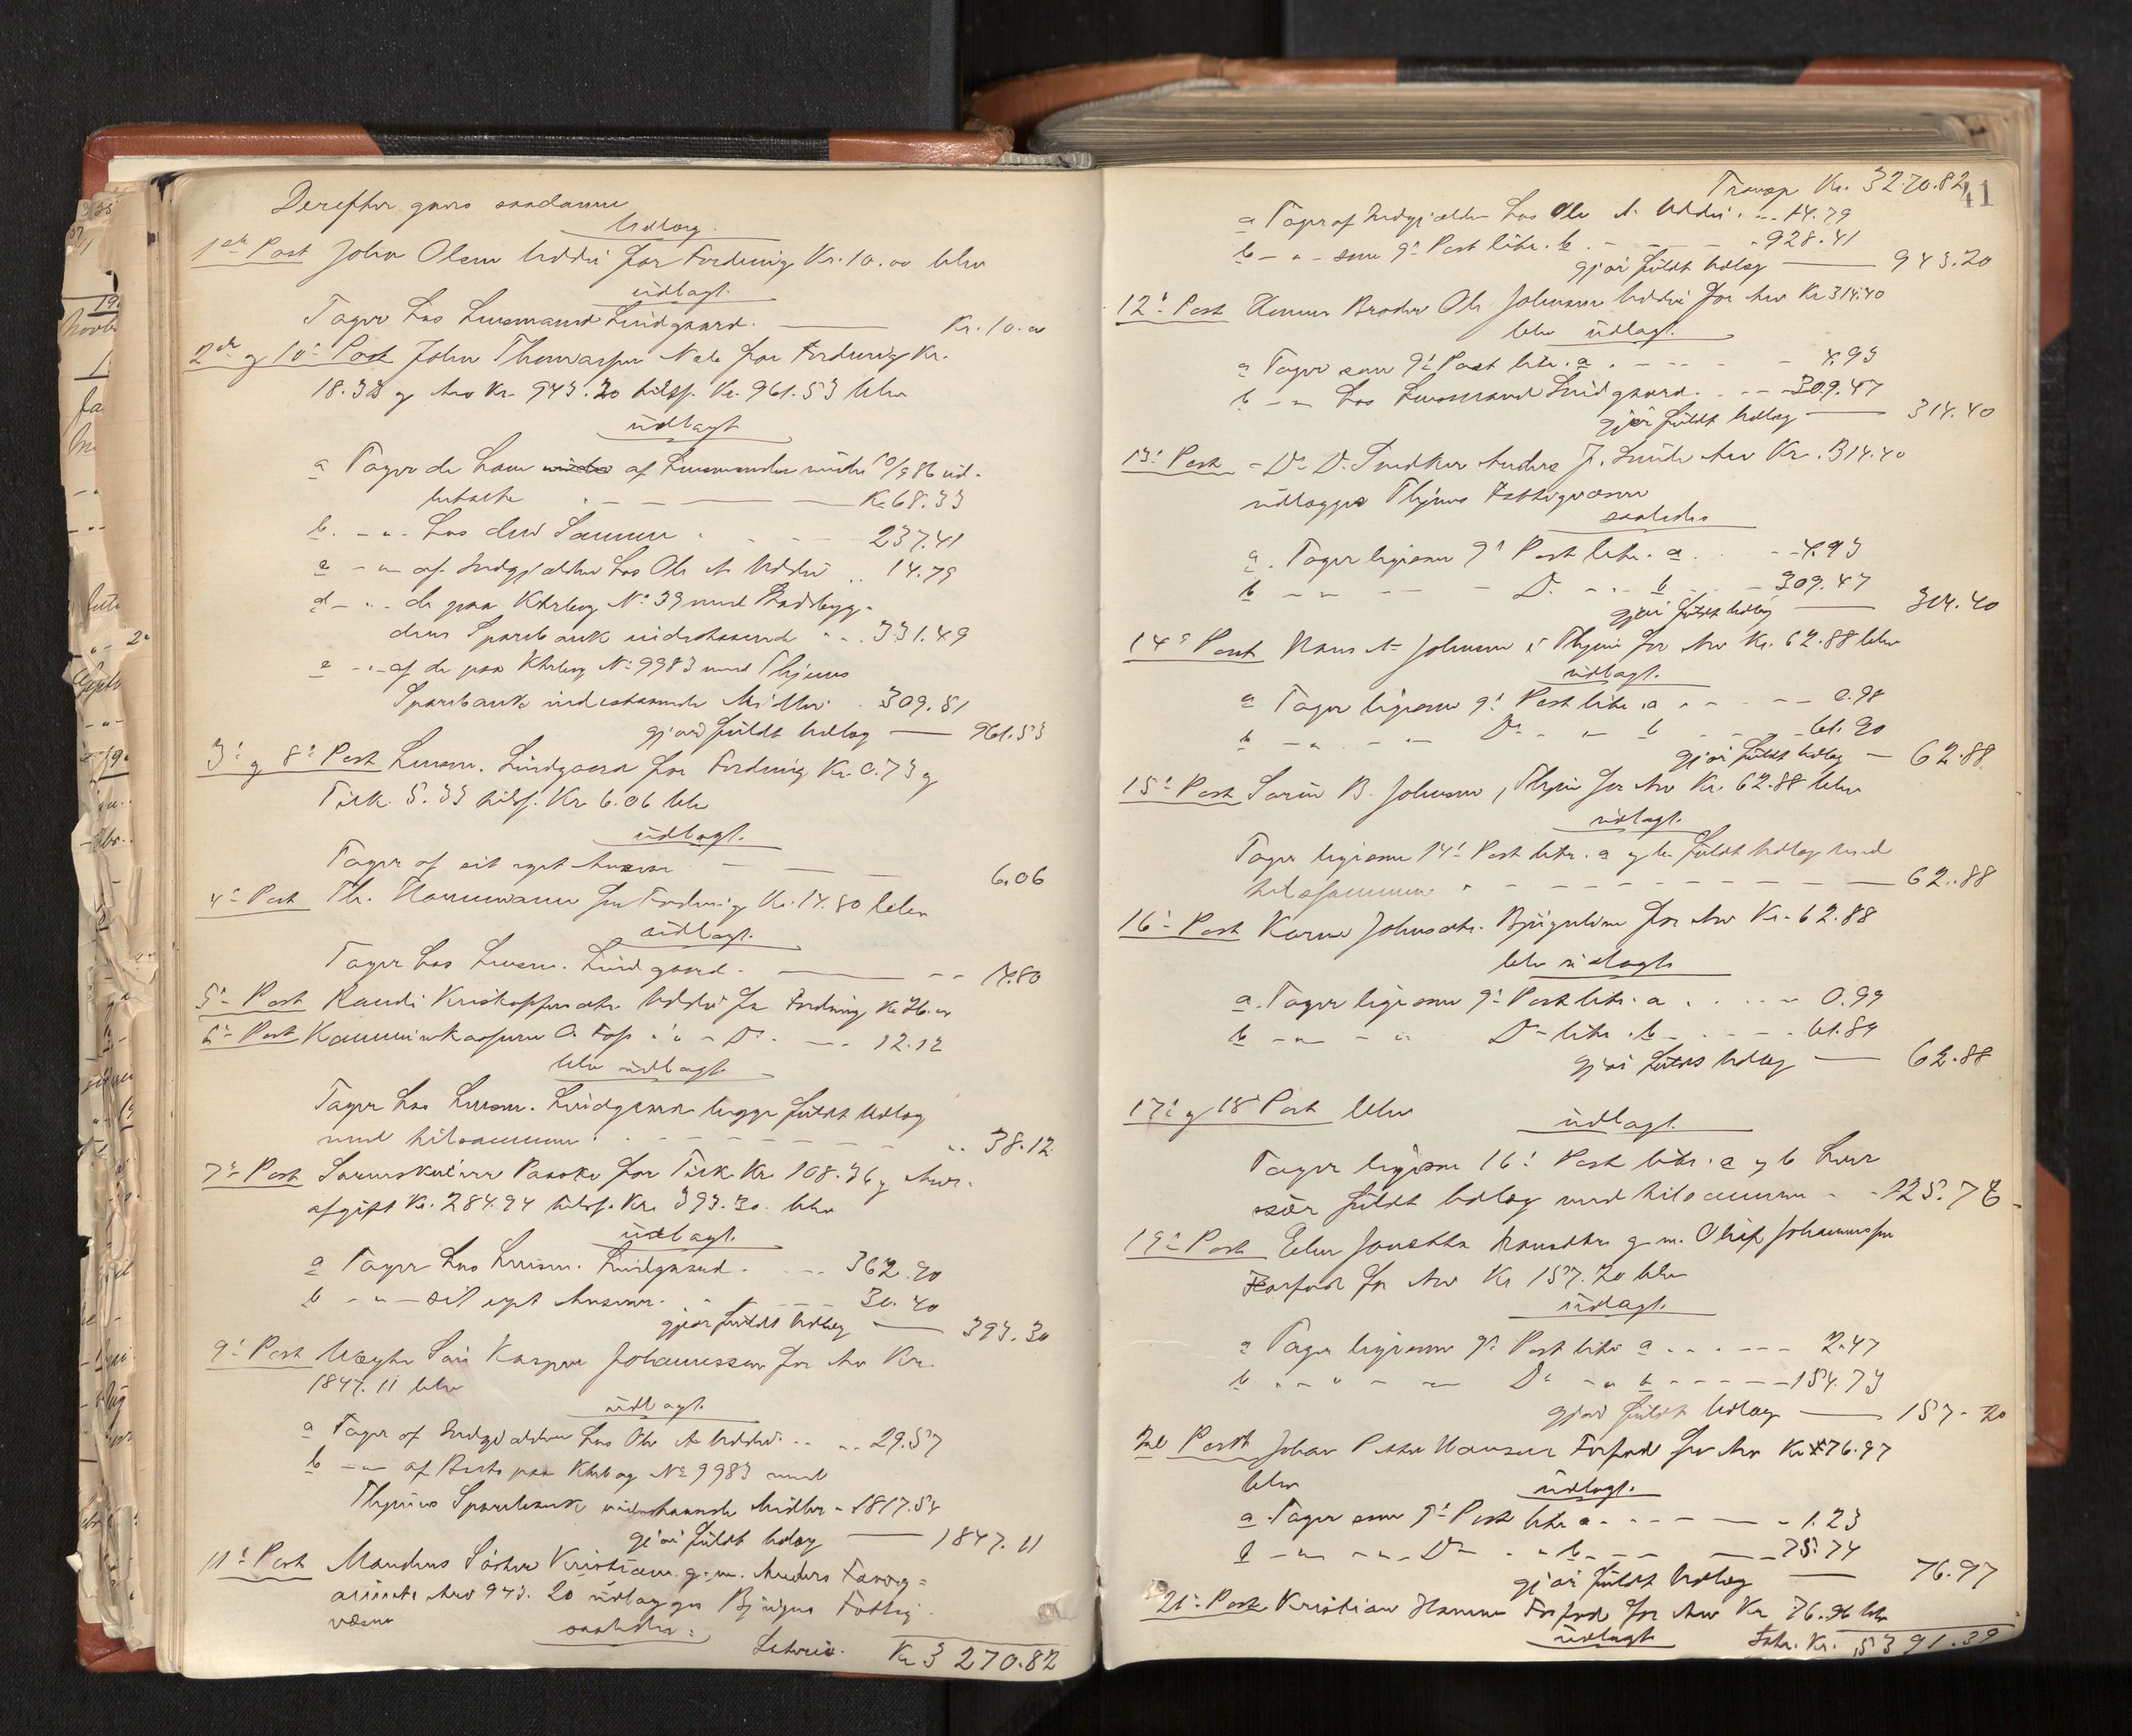 Derefter gives saadanne
Udlæg.
1ste Post John Olsen Uddu for Fordring Kr. 10.00 blev
udlagt.
Tager hos Lensmand Lindgaard. Kr. 10.00
2den og 10e Post John Thomassen for Fordring Kr.
18.33 og Arv Kr. 943.20 tilsf. Kr. 961.53 blev
udlagt
a Tager de hans af Lensmanden under 10/9 86 ud-
betalte Kr 68.33
b. - " - hos den Samme 237.41
c - " - af Indgjælden hos Ole A. Uddu 14.79
d - " - de paa Ktrbog No 39 med Stadsbyg-
dens Sparebank indestaaende 331.49
e - " - af de paa Ktrbog No 9983 med Thjems
Sparebank indestaaende Midler 309.51
gjør fuldt Udlæg 961.53
3e og 8e Post Lensm. Lindgaard for Fordring Kr. 0.73 og
Tilk. 5.33 tilsf. Kr. 6.06 blev
udlagt.
Tager af sit eget Ansvar 6.06
4e Post Th. Hannemann for Fordring Kr. 17.80 blev
udlagt.
Tager hos Lensm. Lindgaard. 17.80
5e Post Randi Kristoffersdtr. Uddu for Fordring Kr. 26.00
6e Post - D° - 12.12
blev udlagt
Tager hos Lensm. Lindgaard begge fuldt Udlæg
med tilsammen 38.12
7e Post Sorenskriver Paaske for Tilk. Kr. 108.36 og Arve-
afgift Kr. 284.94 tilsf. Kr. 393.30. blev
udlagt.
a Tager hos Lensm. Lindgaard. 362.90
b - " - sit eget Ansvar. 30.40
gjør fuldt Udlæg 393.30
9e Post Kasper Johannessen for Arv Kr.
1847.11 blev
udlagt.
a Tager af Indgjælden hos Ole A. Uddu 29.57
b - " - af Rest paa Ktrbog No 9983 med
Thjems Sparebank indestaaende Midler 1817.54
gjør fuldt Udlæg 1847.11
11e Post Mandens Søster Kristian g. m. Anders
Arv 943.20 udlægges Bjugns Fattig-
væsen saaledes:
Latus. Kr 3270.82
Transp Kr. 3270.82 41
a Tager af Indgjælden hos Ole A. Uddu 14.79
b - " - som 9e Post litr. b. 928.41
gjør fuldt Udlæg 943.20
12e Post Broder Ole Johnsen Uddu for Arv Kr 314.40
blev udlagt.
a Tager som 9e Post litr. a 4.93
b - " hos Lensmand Lindgaard. 309.47
gjør fuldt Udlæg 314.40
13e Post - D° D° Snedker Anders J. Arv Kr. 314.40
udlægges Thjems Fattigvæsen
saaledes
a. Tager ligesom 9e Post litr. a 4.93
b - " - D° - b 309.47
gjør fuldt Udlæg 314.40
14e Post Hans A. Johnsen, Thjem for Arv Kr. 62.88 blev
udlagt.
a Tager ligesom 9e Post litr. a 0.98
b - " - D° - " - b 61.90
gjør fuldt Udlæg 62.88.
15e Post B. Johnsen, Thjem for Arv Kr. 62.88 blev
udlagt.
Tager ligesom 14e Post litr. a og b fuldt Udlæg med
tilsammen 62.88
16e Post Karen Johnsdtr. for Arv Kr. 62.88
blev udlagt
a. Tager ligesom 9e Post litr. a 0.99
b - " - D° litr. b 61.89
gjør fuldt Udlæg 62.88
17e og 18e Post blev
udlagt.
Tager ligesom 16e Post litr. a og b hver
især fuldt Udlæg med tilsammen 125.76
19e Post Ellen Jonetta g. m. Johannessen
Forfod for Arv Kr 157.20 blev
udlagt.
a Tager ligesom 9e Post litr a 2.47
b - " - D° - " b 154.73
gjør fuldt Udlæg 157.20
20e Post Johan Petter Hansen Forfod for Arv Kr 76.97
blev udlagt.
a. Tager som 9e Post litr a 1.23
b - " - D° - " b 75.74
gjør fuldt Udlæg 76.97
21e Post Kristian Hansen Forfod for Arv Kr 76.96 blev
udlagt Latr. Kr. 5391.39